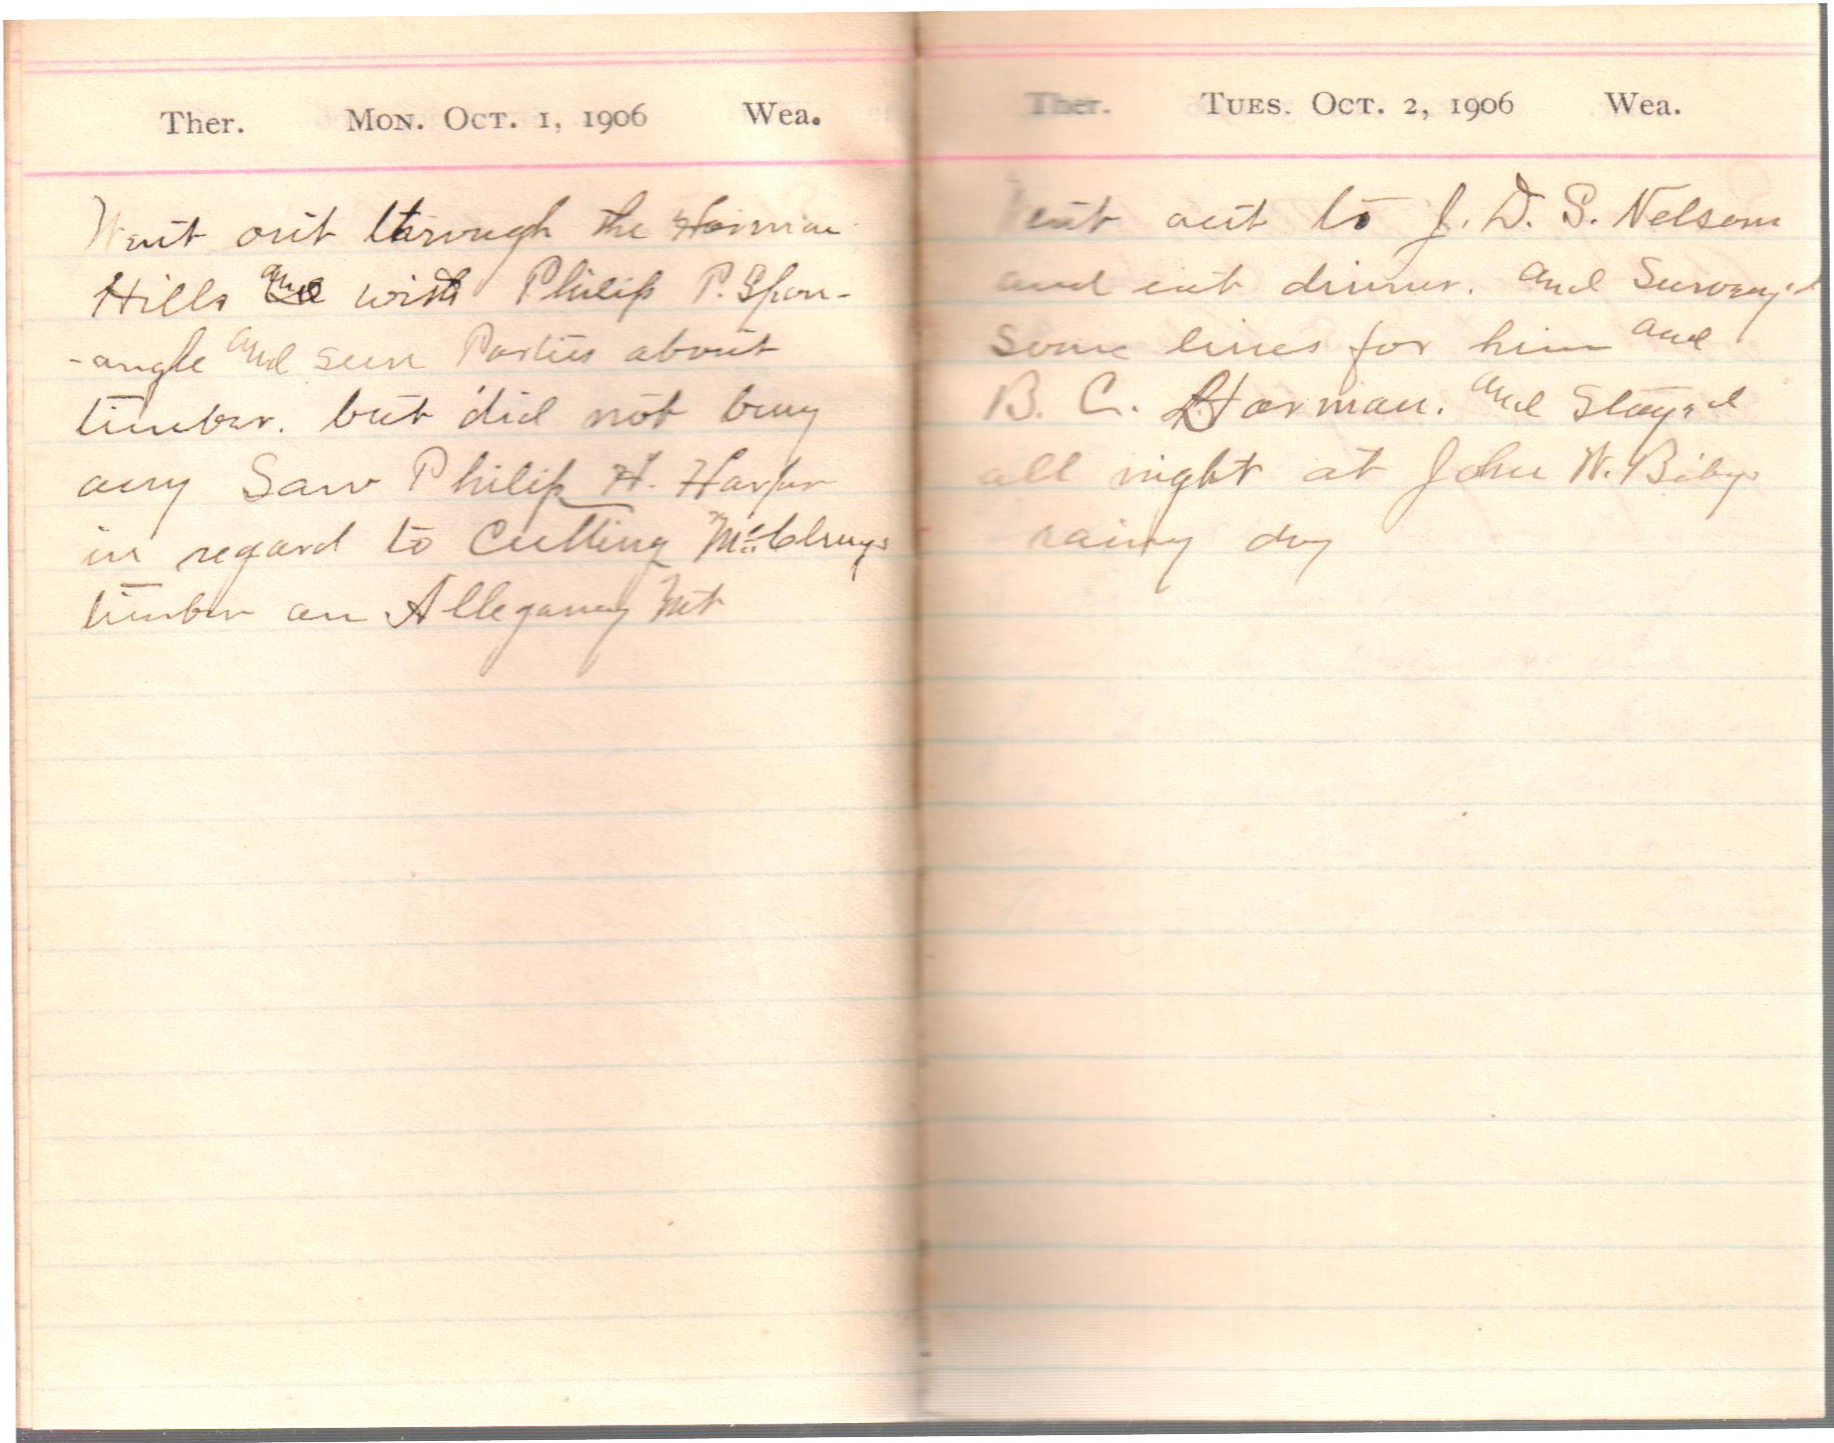 Ther. Mon. Oct. 1, 1906 Wea.
Went out through the Harman
Hills and with Philip P. Spon-
-angle and seen Parties about
timber. but did not buy
any Saw Philip H. Harper
in regard to Cutting
timber on Allegany Mt
Ther. Tues. Oct. 2, 1906 Wea.
Went out to J. D. S. Nelson
and eat dinner. and Survey'd
some lines for him and
B. C. Harman. and Stayed
all night at John W. Bibys
rainy day